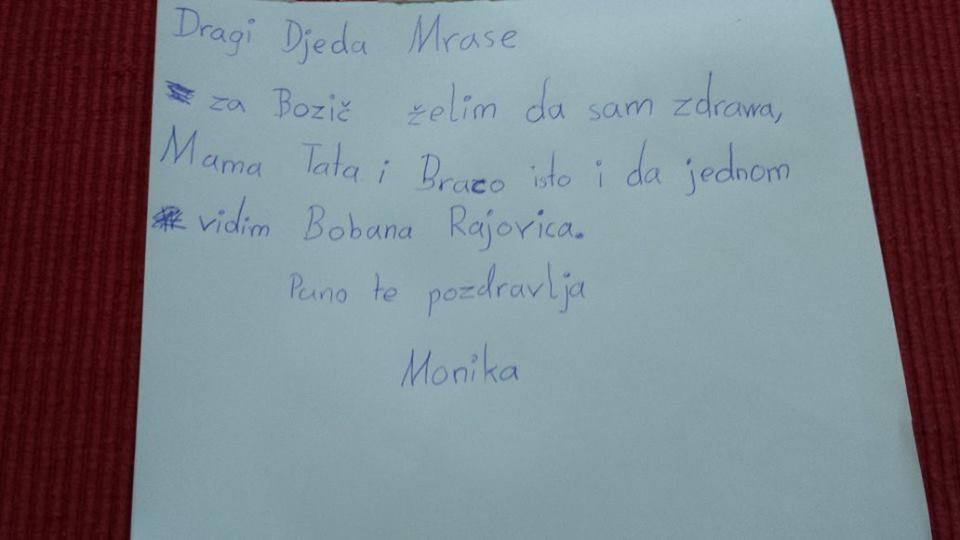 Dragi Djeda Mrase
za Bozič želim da sam zdrawa,
Mama Tata i Braco isto i da jednom
vidim Bobana Rajovica.
Puno te pozdravlja
Monika